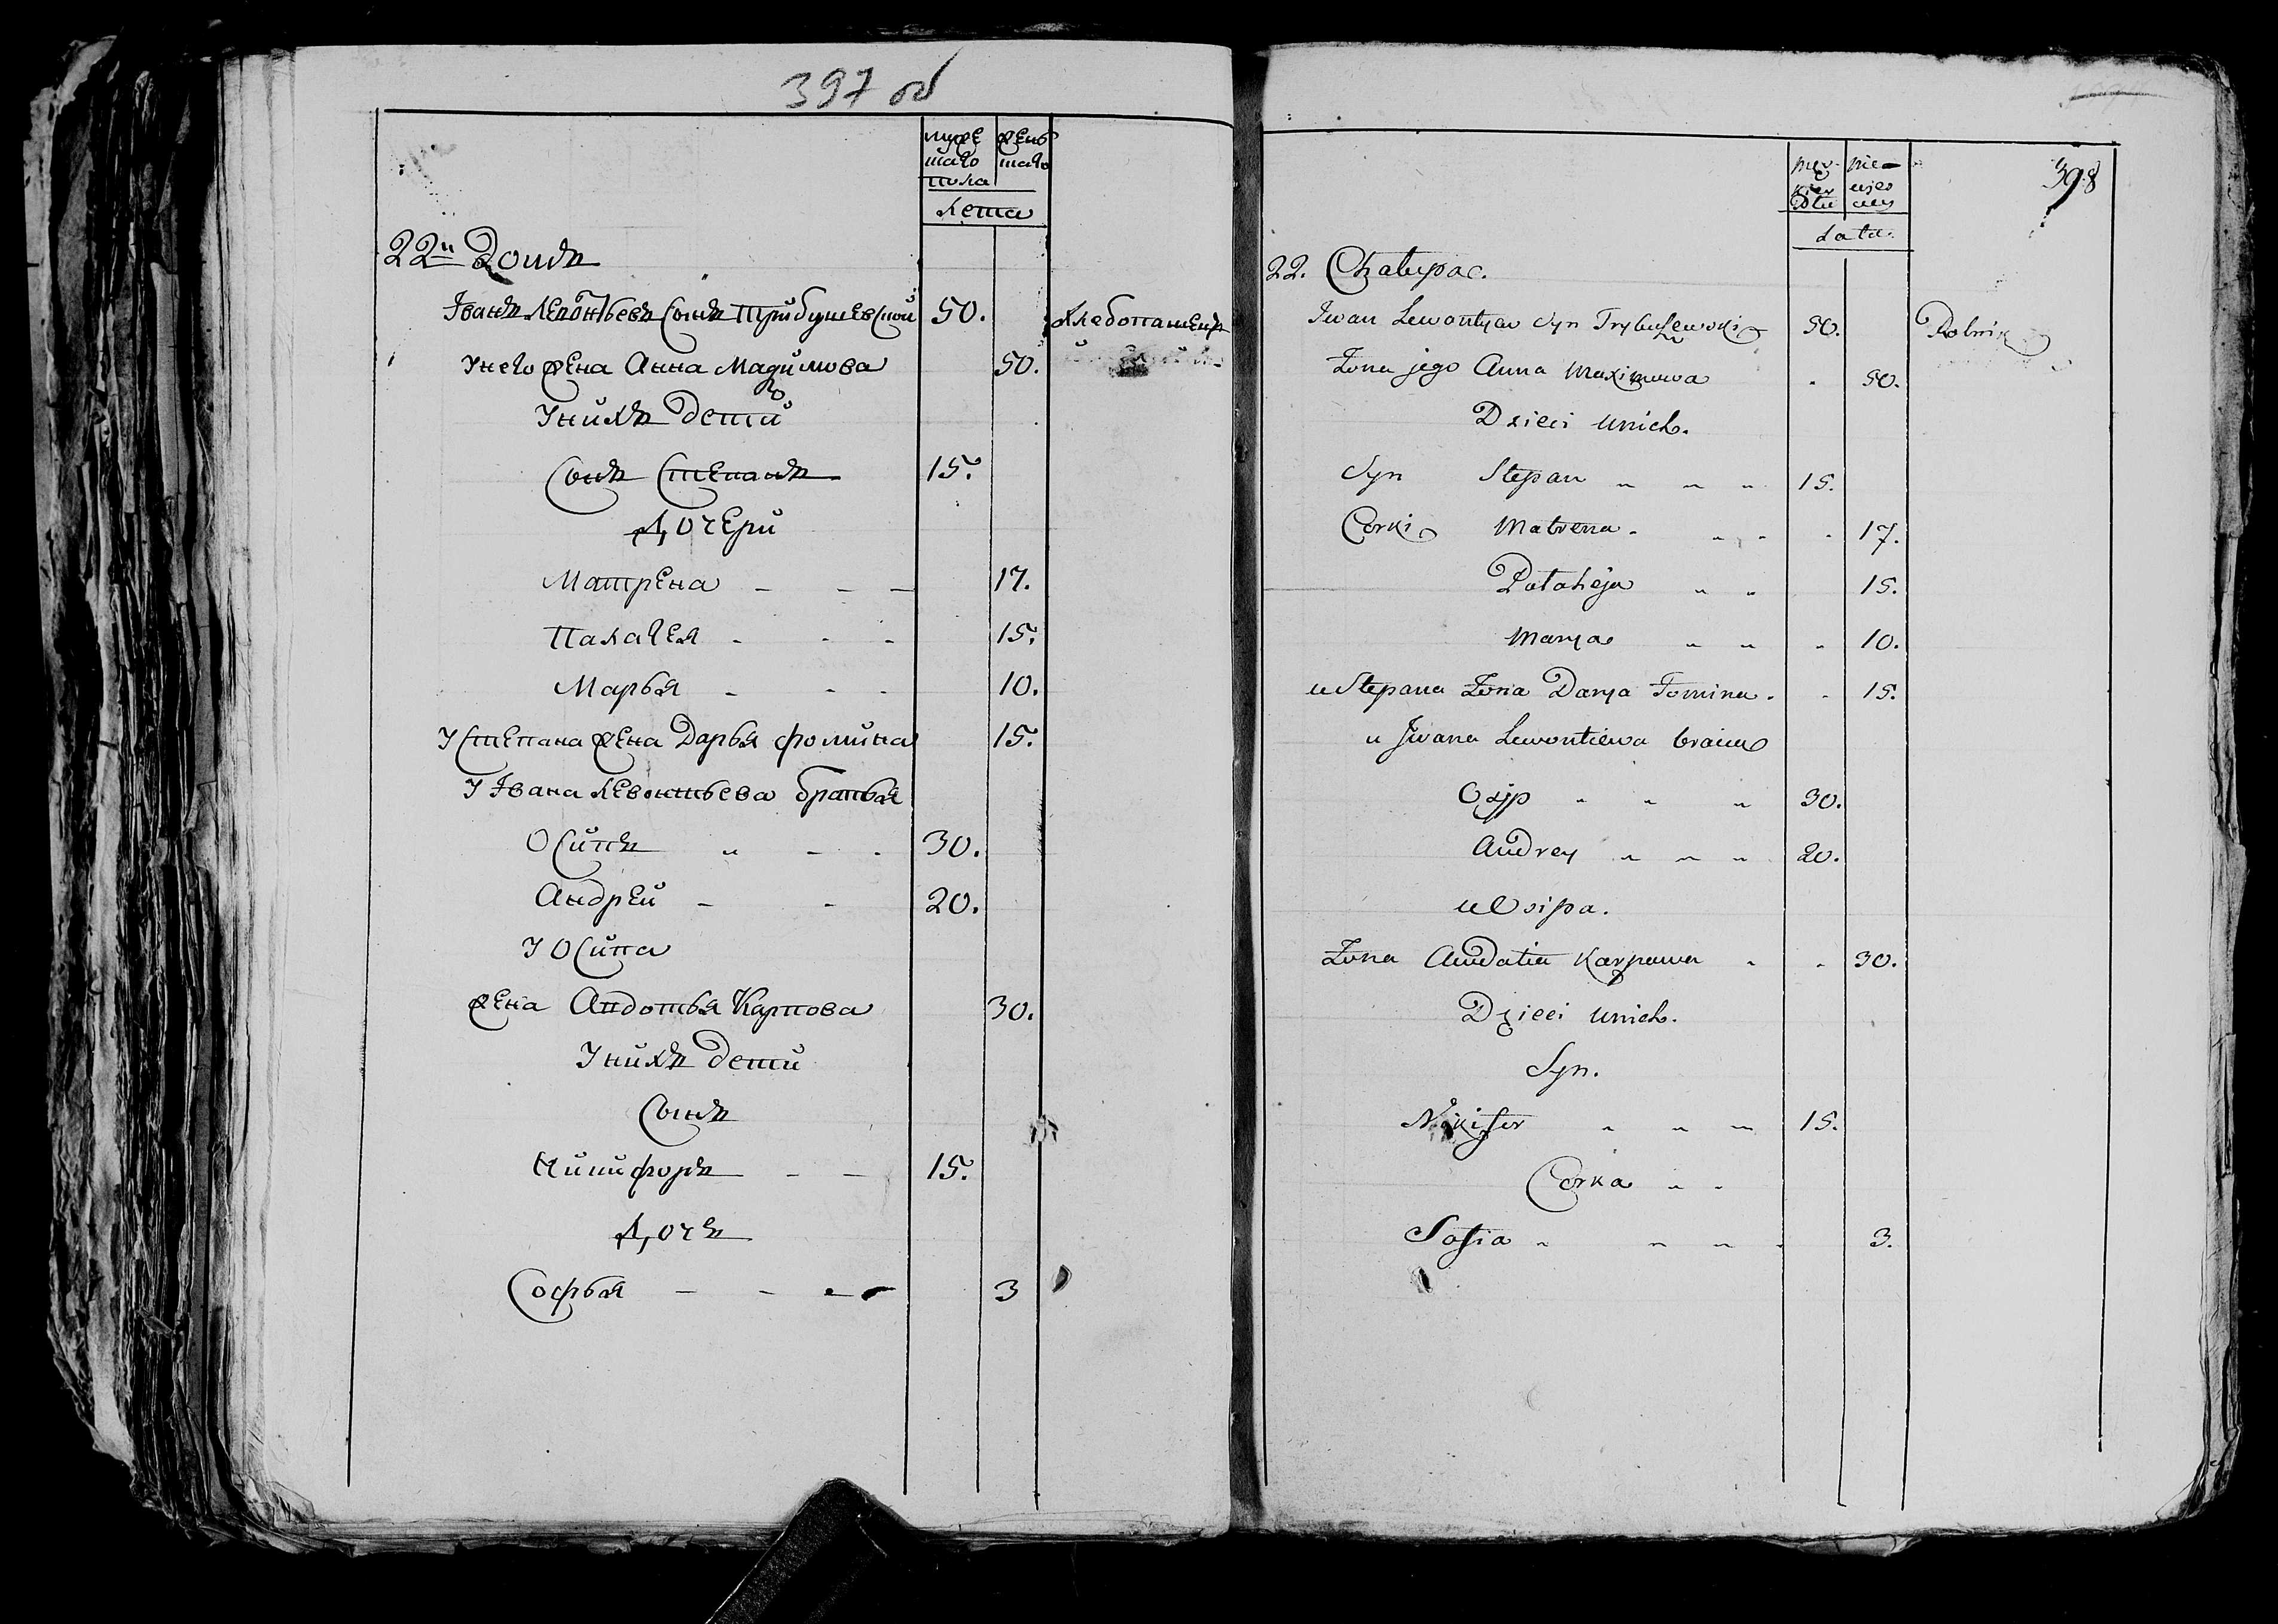 397 об
муже
скаго
пола
жень
скаго
лета
22й Домъ
Іванъ Левонтьевъ сынъ Трибушевской 50. Хлебопашецъ
У него жена Анна Мадимова 50.
У нихъ дети
Сынъ Степанъ 15.
Дочери
Матрена 17.
Палагея 15.
Марья 10.
У Степана жена Дарья Фомина 15.
У Івана Левонтьева братья
Осипъ 30.
Андрей 20.
У Осипа
жена Авдотья Карпова 30.
У нихъ дети
Сынъ
Никифоръ 15.
Дочь
Софья 3
398
Lata
22. Chałupa.
Iwan Lewontyew syn Trybuszewski 50. Rolnik
Zona jego Anna Maximowa 50.
Dzieci unich.
Syn Stepan 15.
Corki Matrena 17.
Palaheja 15.
Marya 10.
u Stepana Zona Darya Fomina 15.
u Iwana Lewontiewa bracia
Osyp 30.
Andrey 20.
u Osipa.
Zona Audatia Karpawa 30.
Dzieci unich.
Syn.
Nikifor 15.
Corka
Sofia 3.